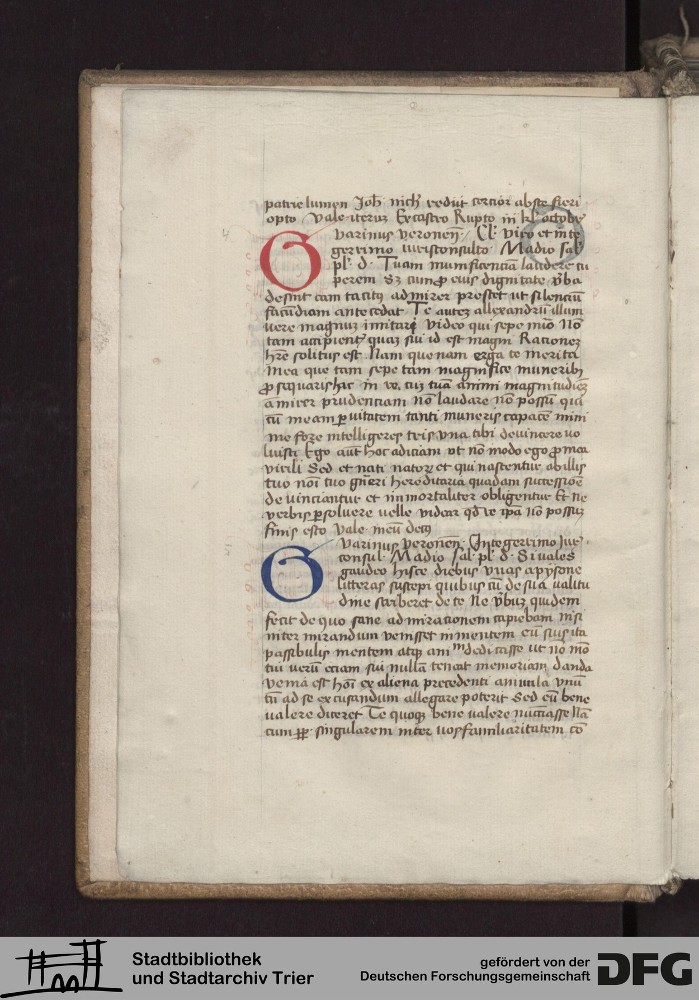 patrie lumen Joh̅ mich̅ reddit certior abs te fieri
opto Vale iterum Ex castro Rupto iii kl̅ octobr̅
Guarinus Veronen̅. Cl. Viro et inte
gerrimo iurisconsulto Madio sal̅
pl̅ d̅. Tuam munificenciam laudere cu
perem Sz cum ꝓ eius dignitate v̅ba
desint eam tacitus admirer prestet ut silencium
facundiam antecedat Te autem allexandru̅ illum
vere magnum imitare video qui sepe mi̅o no̅
tam accipient̅ quam sui id est magni Rationem
h̅re solitus est Nam que nam erga te merita
mea que tam sepe tam magnifice muneribus
ꝓsequaris hac in re. cum tua̅ animi magnitudine̅
amirer prudenciam no̅ laudare no̅ possu̅ qui
cu̅ meam ꝑvitatem tanti muneris capace̅ mini
me fore intelligeres tris vna tibi devincere vo
luisti Ego aut̅ hoc adiciam ut no̅ modo ego ꝓ mea
virili Sed et nati natorum et qui nascentur ab illis
tuo non̅ tuo gn̅eri hereditaria quadam successione̅
devinciantur et immortaliter obligentur Et ne
verbis ꝑsolvere velle videar qd̅ re ipa̅ no̅ possum
finis esto Vale meu̅ decus
Guarinus Veronen̅. Integerrimo Jure
consul̅. Madio sal̅ pl̅ d̅. Si vales
gaudeo hisce diebus vnas a pysone
litteras suscepi quibus cu̅ de sua valitu
dine scriberet de te Ne v̅bum quidem
fecit de quo sane admirationem capiebam nisi
inter mirandum venisset in mentem eu̅ suis ita
passibulis mentem atque ani̅m dedicasse ut no̅ mo̅
tui veru̅ eciam sui nulla̅ teneat memoriam danda
venia est ho̅i ex aliena precedenti amicula vnu̅
cu̅ ad se excusandum allegare poterit Sed eu̅ bene
valere diceret Te quoque bene valere nunciasse Na̅
cum ꝑꝑ singularem inter vos familiaritatem co̅
Stadtbibliothek
und Stadtarchiv Trier
gefördert von der
Deutschen Forschungsgemeinschaft
DFG